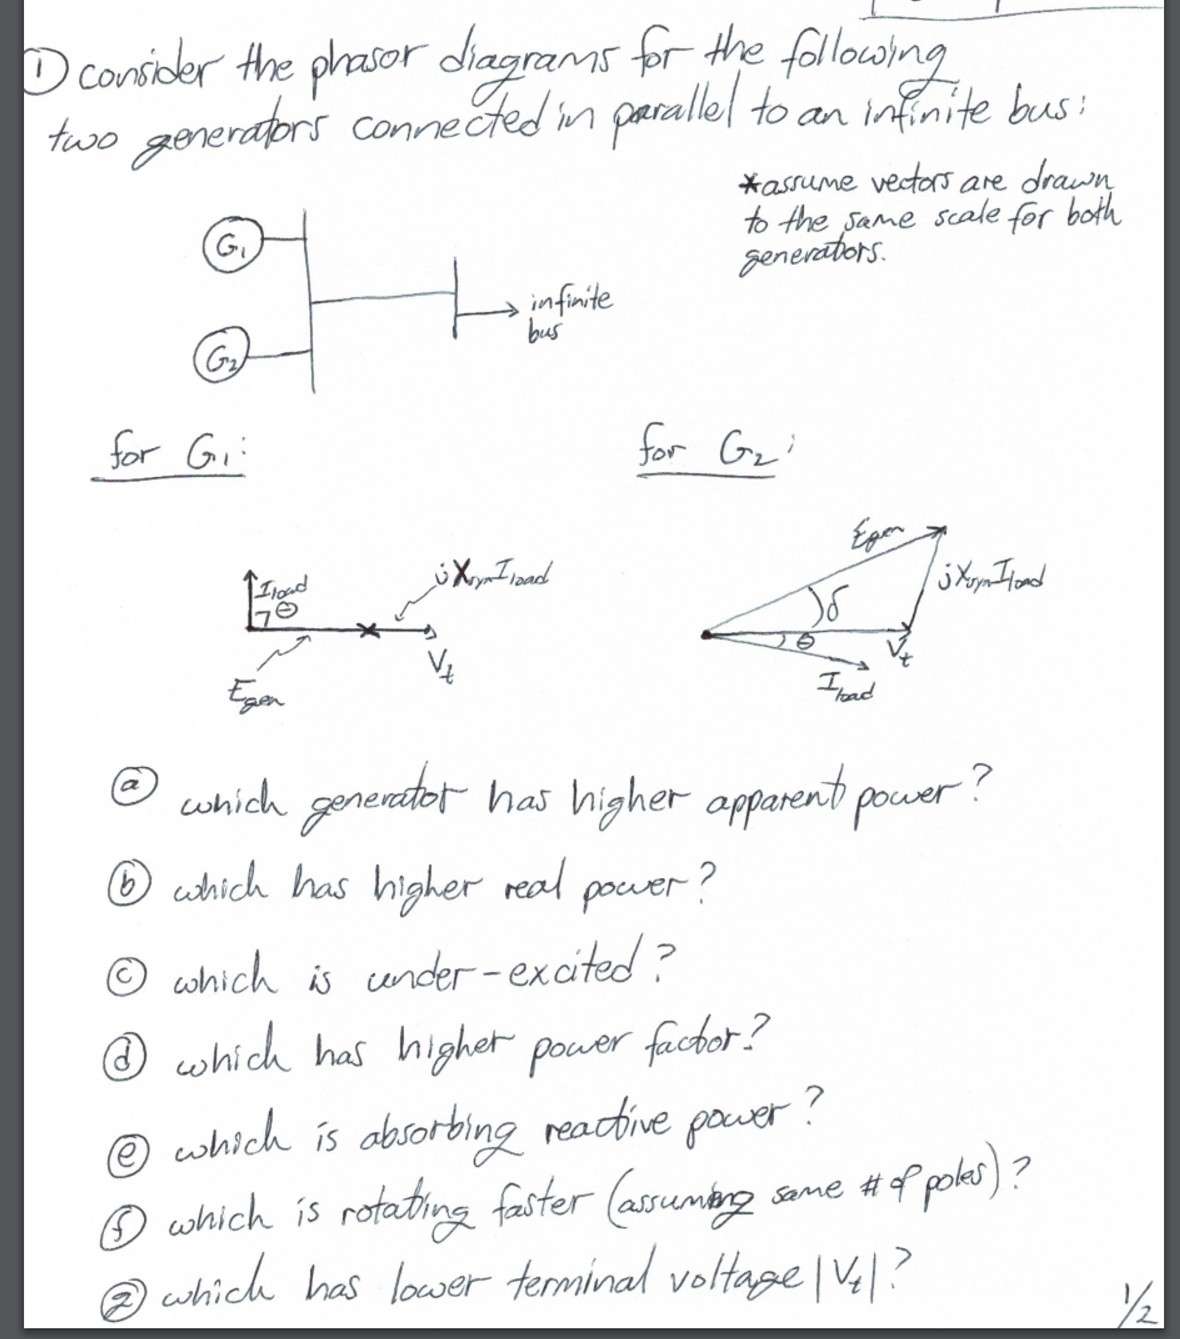 ① consider the phasor diagrams for the following
two generators connected in parallel to an infinite bus:
*assume vectors are drawn
to the same scale for both
generators.
G₁
infinite
bus
G₂
for G₁:
for G₂:
I load
θ
jXsyn I load
Egen
Vt
Egen
δ
jXsyn I load
θ
Vt
I load
ⓐ which generator has higher apparent power?
ⓑ which has higher real power?
ⓒ which is under-excited?
ⓓ which has higher power factor?
ⓔ which is absorbing reactive power?
ⓕ which is rotating faster (assuming same # of poles)?
ⓖ which has lower terminal voltage |Vt|?
1/2